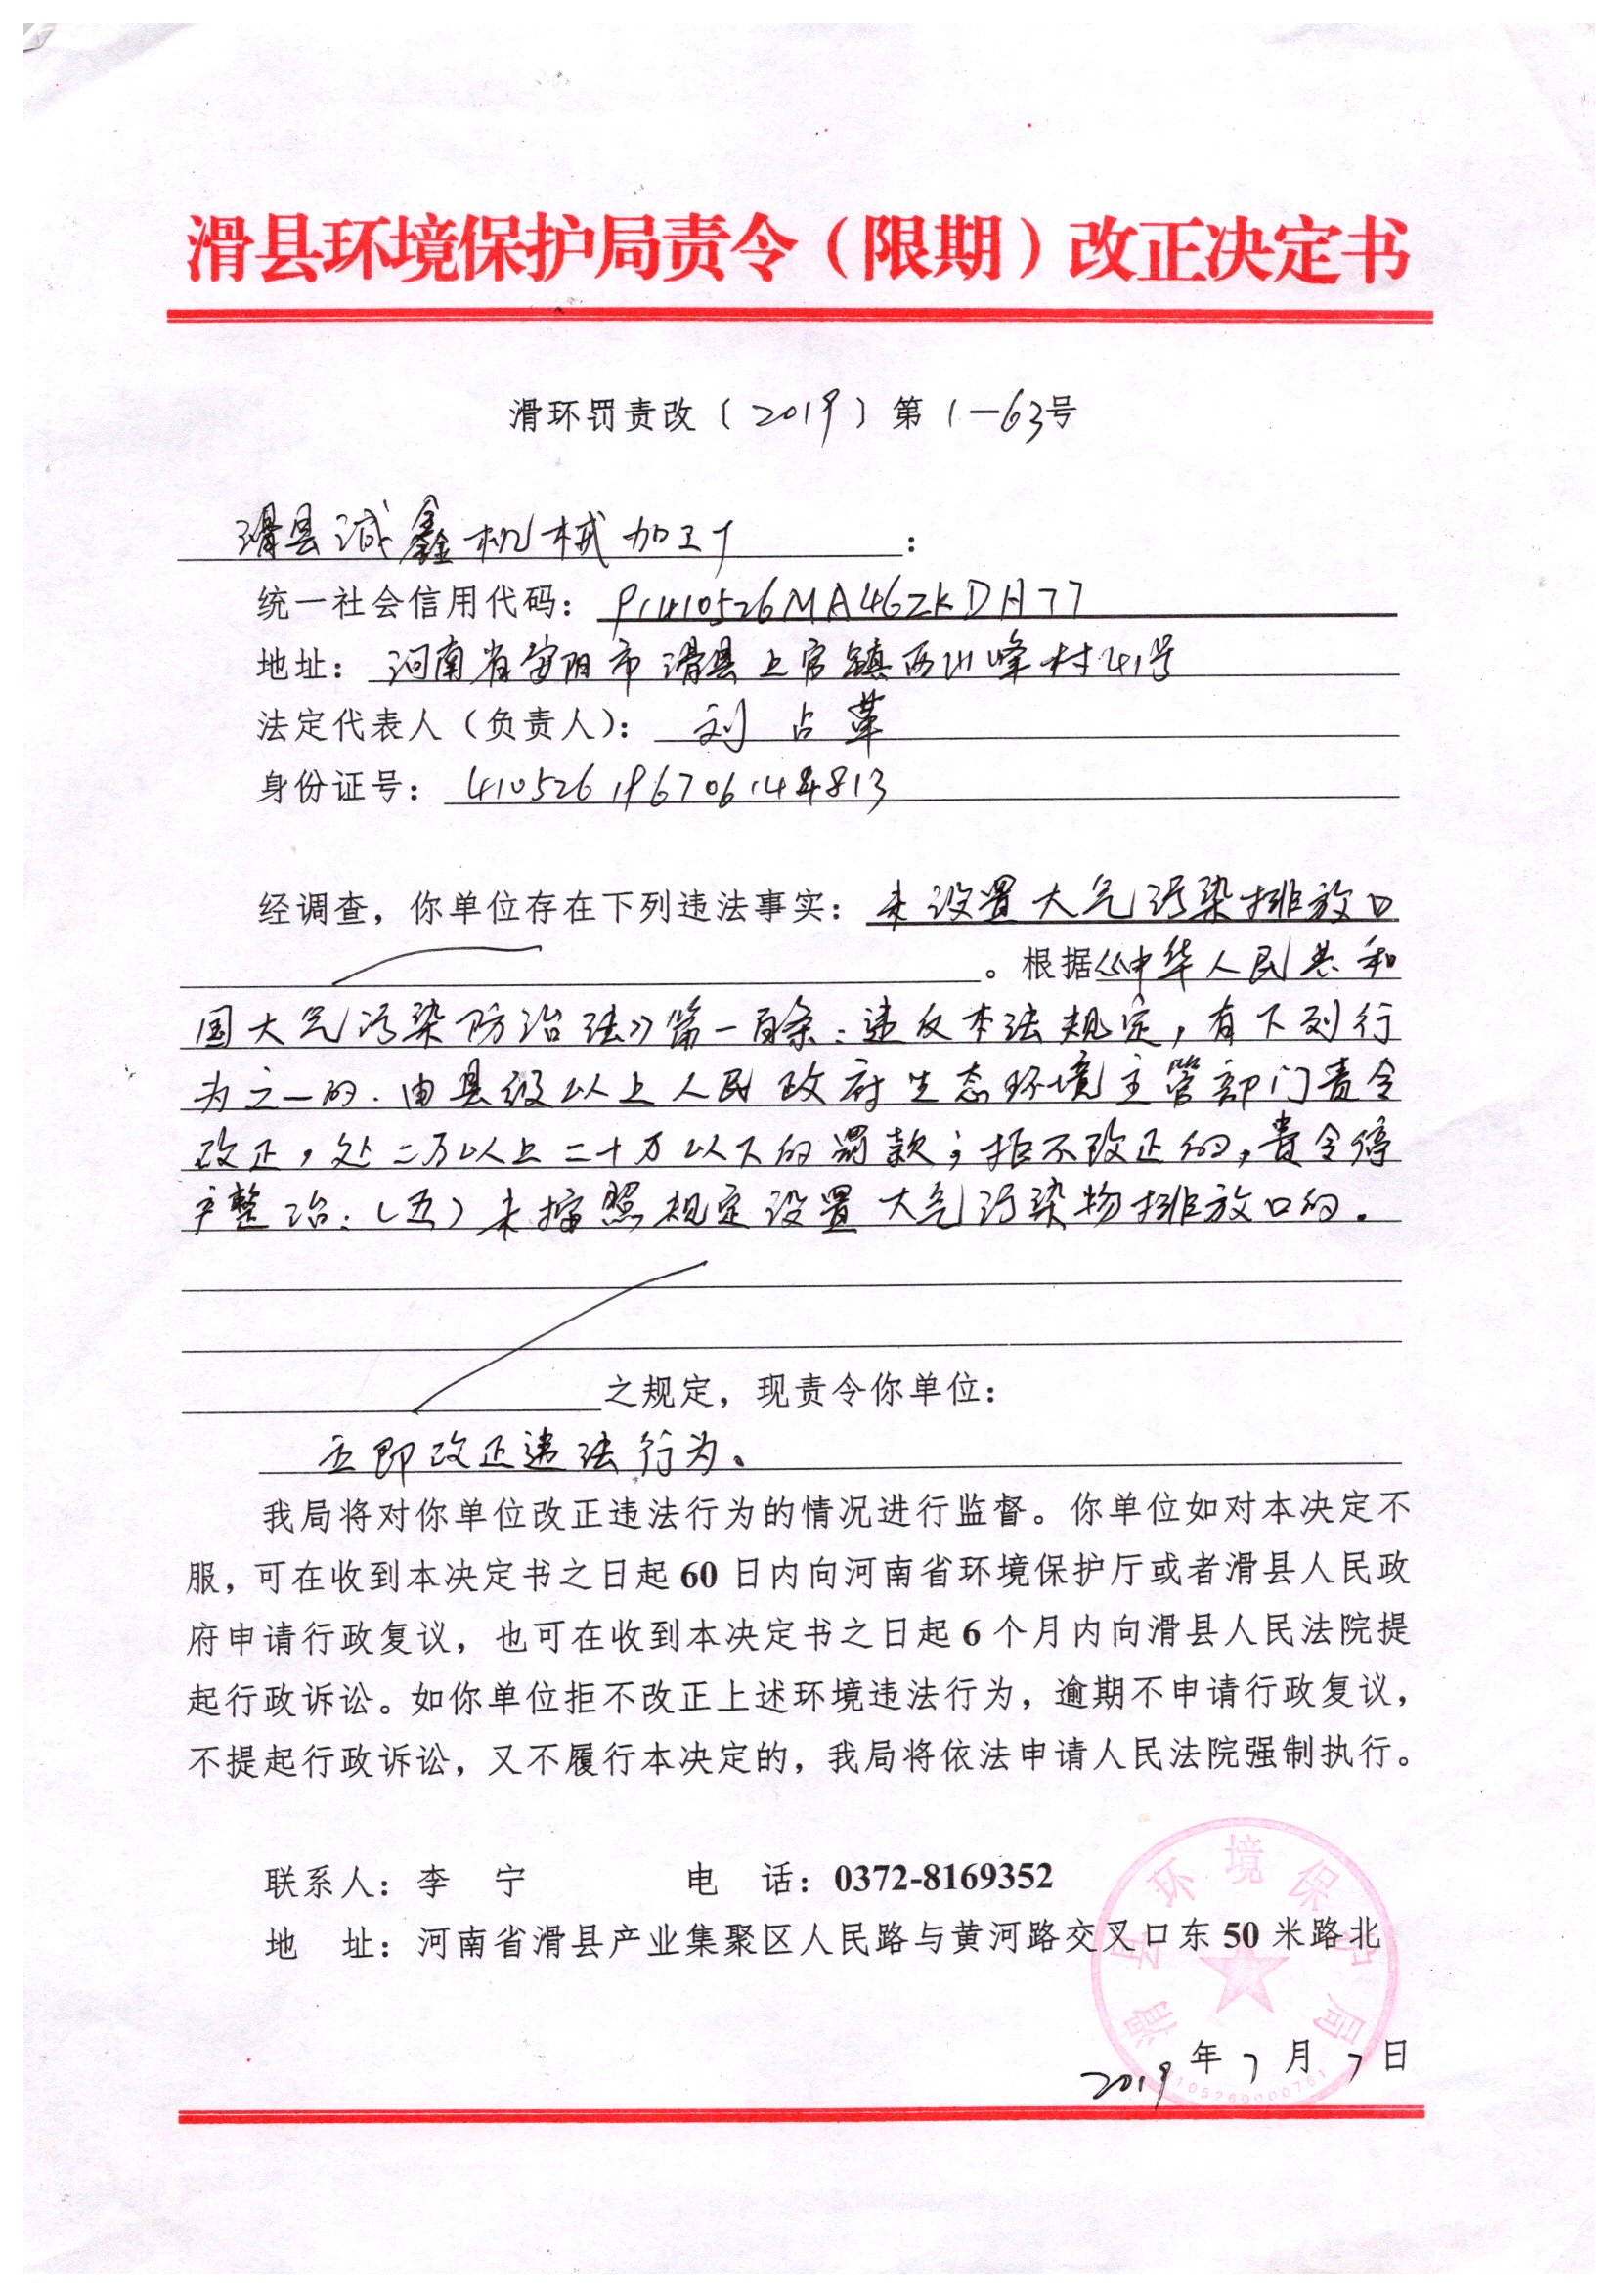 滑县环境保护局责令（限期）改正决定书
滑环罚责改〔2019〕第1-63号
滑县诚鑫机械加工厂：
统一社会信用代码：91410526MA46ZKDH77
地址：河南省安阳市滑县上官镇西小峰村41号
法定代表人（负责人）：刘占革
身份证号：410526196706144813
经调查，你单位存在下列违法事实：未设置大气污染排放口
。根据《中华人民共和
国大气污染防治法》第一百条：违反本法规定，有下列行
为之一的．由县级以上人民政府生态环境主管部门责令
改正，处二万以上二十万以下的罚款；拒不改正的，责令停
产整治：（五）未按照规定设置大气污染物排放口的．
之规定，现责令你单位：
立即改正违法行为。
我局将对你单位改正违法行为的情况进行监督。你单位如对本决定不
服，可在收到本决定书之日起60日内向河南省环境保护厅或者滑县人民政
府申请行政复议，也可在收到本决定书之日起6个月内向滑县人民法院提
起行政诉讼。如你单位拒不改正上述环境违法行为，逾期不申请行政复议，
不提起行政诉讼，又不履行本决定的，我局将依法申请人民法院强制执行。
联系人：李　宁　　　　电　话：0372-8169352
地　址：河南省滑县产业集聚区人民路与黄河路交叉口东50米路北
滑县环境保护局
2019年7月7日